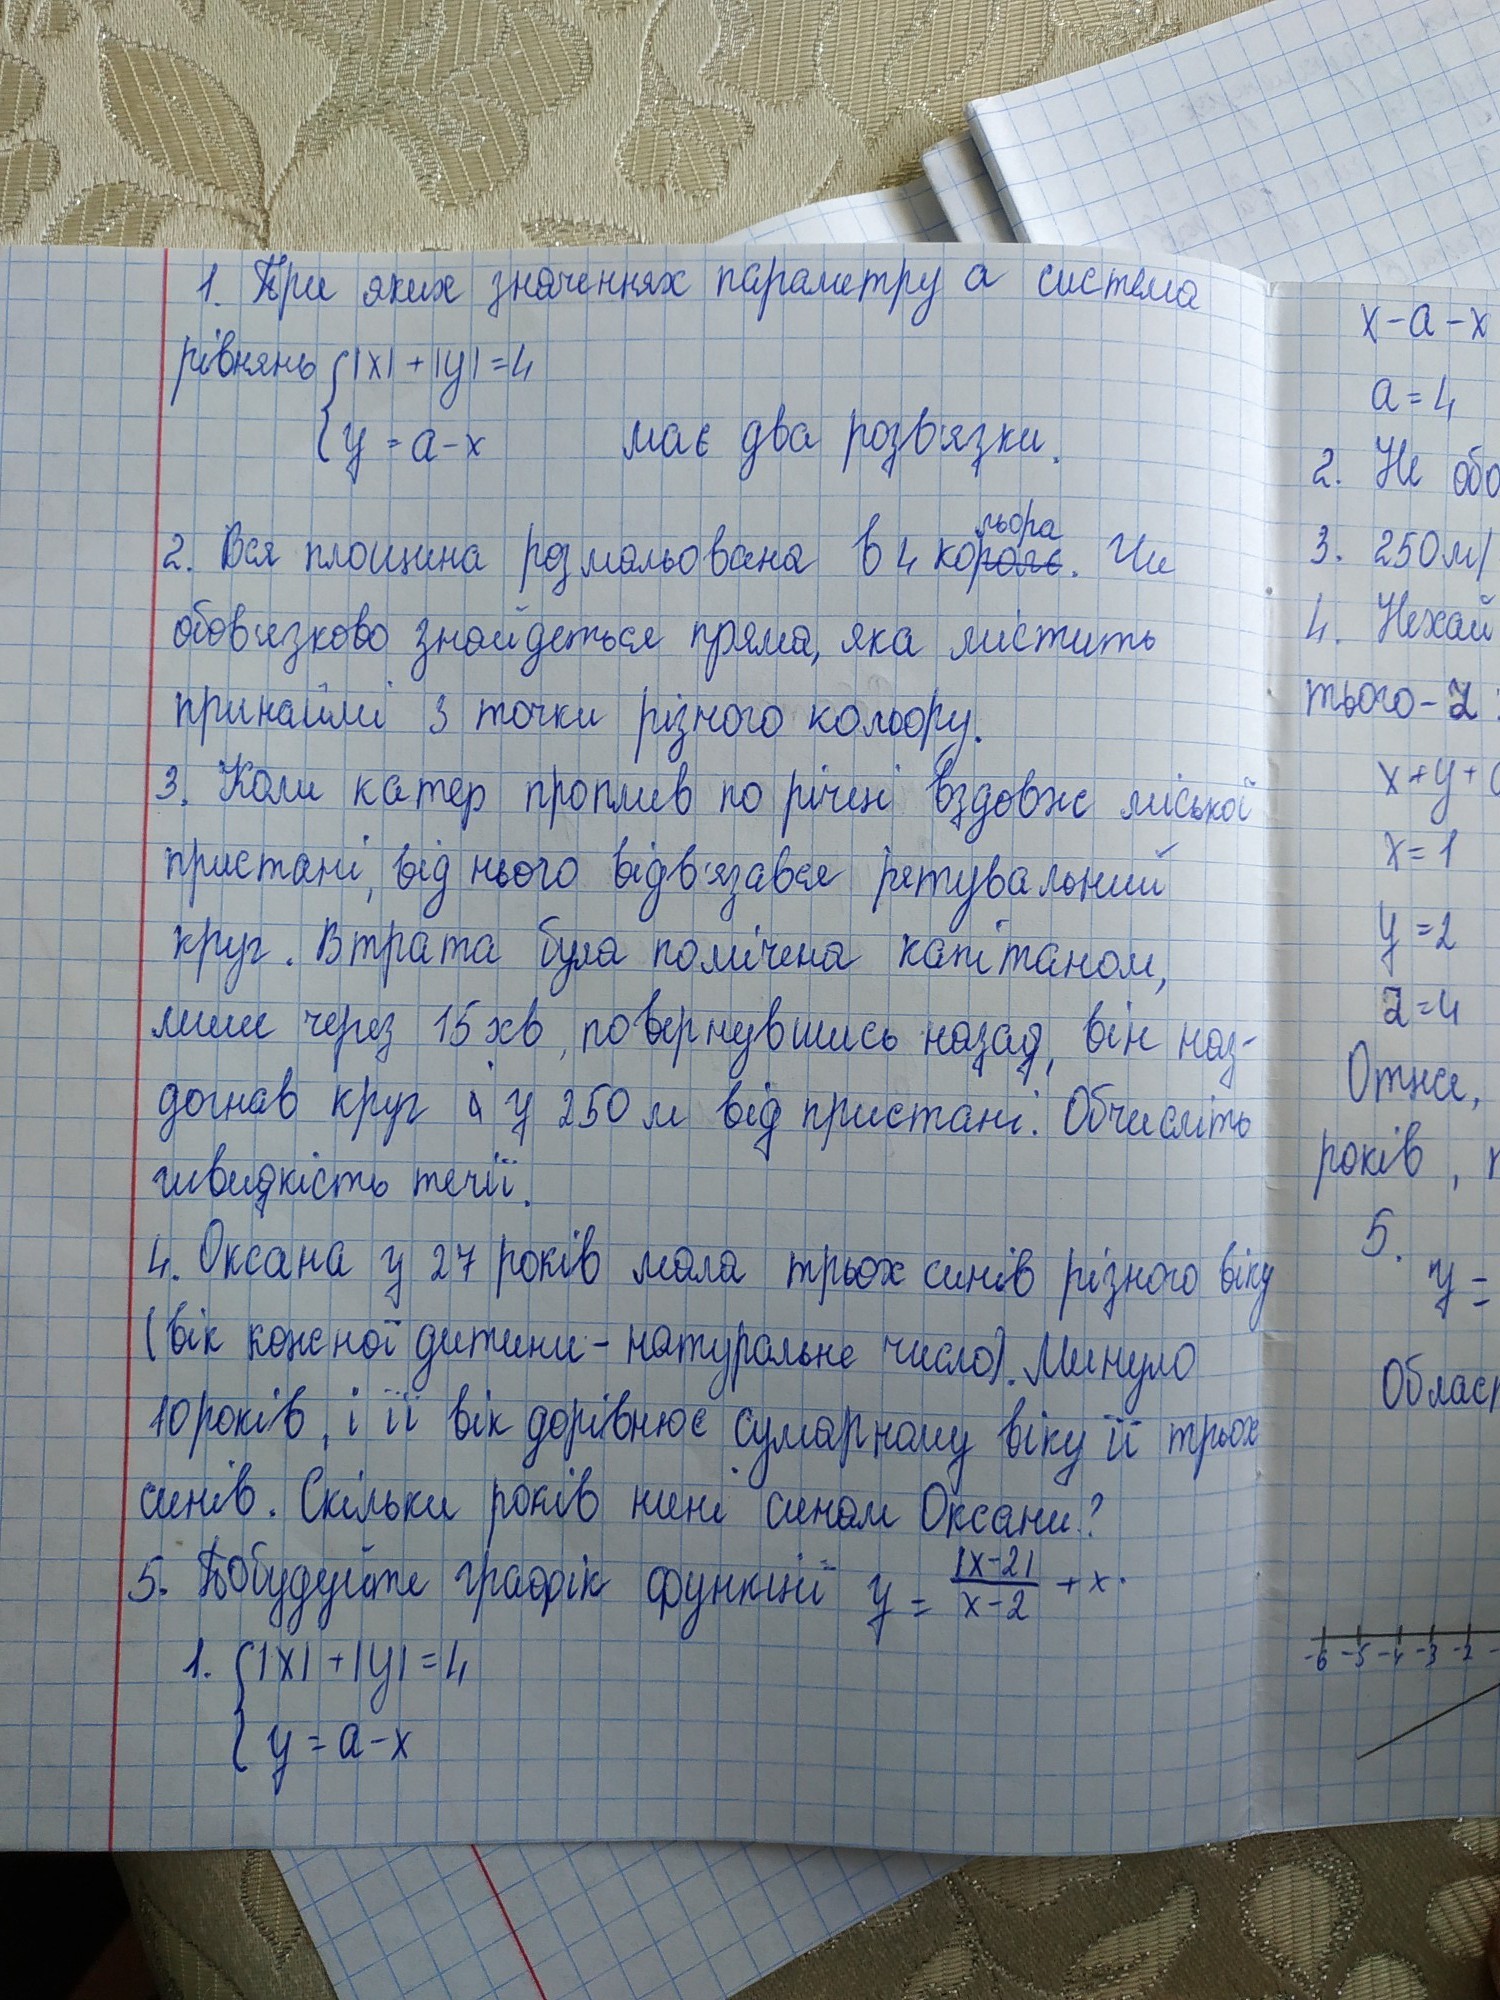 1. При яких значеннях параметру а система
рівнянь { |x| + |y| = 4
y = a - x має два розв'язки.
2. Вся площина розмальована в 4 кольора. Чи
обов'язково знайдеться пряма, яка містить
принаймі 3 точки різного кольору.
3. Коли катер проплив по річці вздовж міської
пристані, від нього відв'язався рятувальний
круг. Втрата була помічена капітаном,
лише через 15 хв, повернувшись назад, він наз-
догнав круг у 250 м від пристані. Обчисліть
швидкість течії.
4. Оксана у 27 років мала трьох синів різного віку
(вік кожної дитини - натуральне число). Минуло
10 років, і її вік дорівнює сумарному віку її трьох
синів. Скільки років нині синам Оксани?
5. Побудуйте графік функції y = |x-2| / x-2 + x.
1. { |x| + |y| = 4
y = a - x
x - a - x
a = 4
2. Не обо
3. 250 м/
4. Нехай
тього - z
x + y +
x = 1
y = 2
z = 4
Отже,
років,
5.
y =
Област
-6 -5 -4 -3 -2